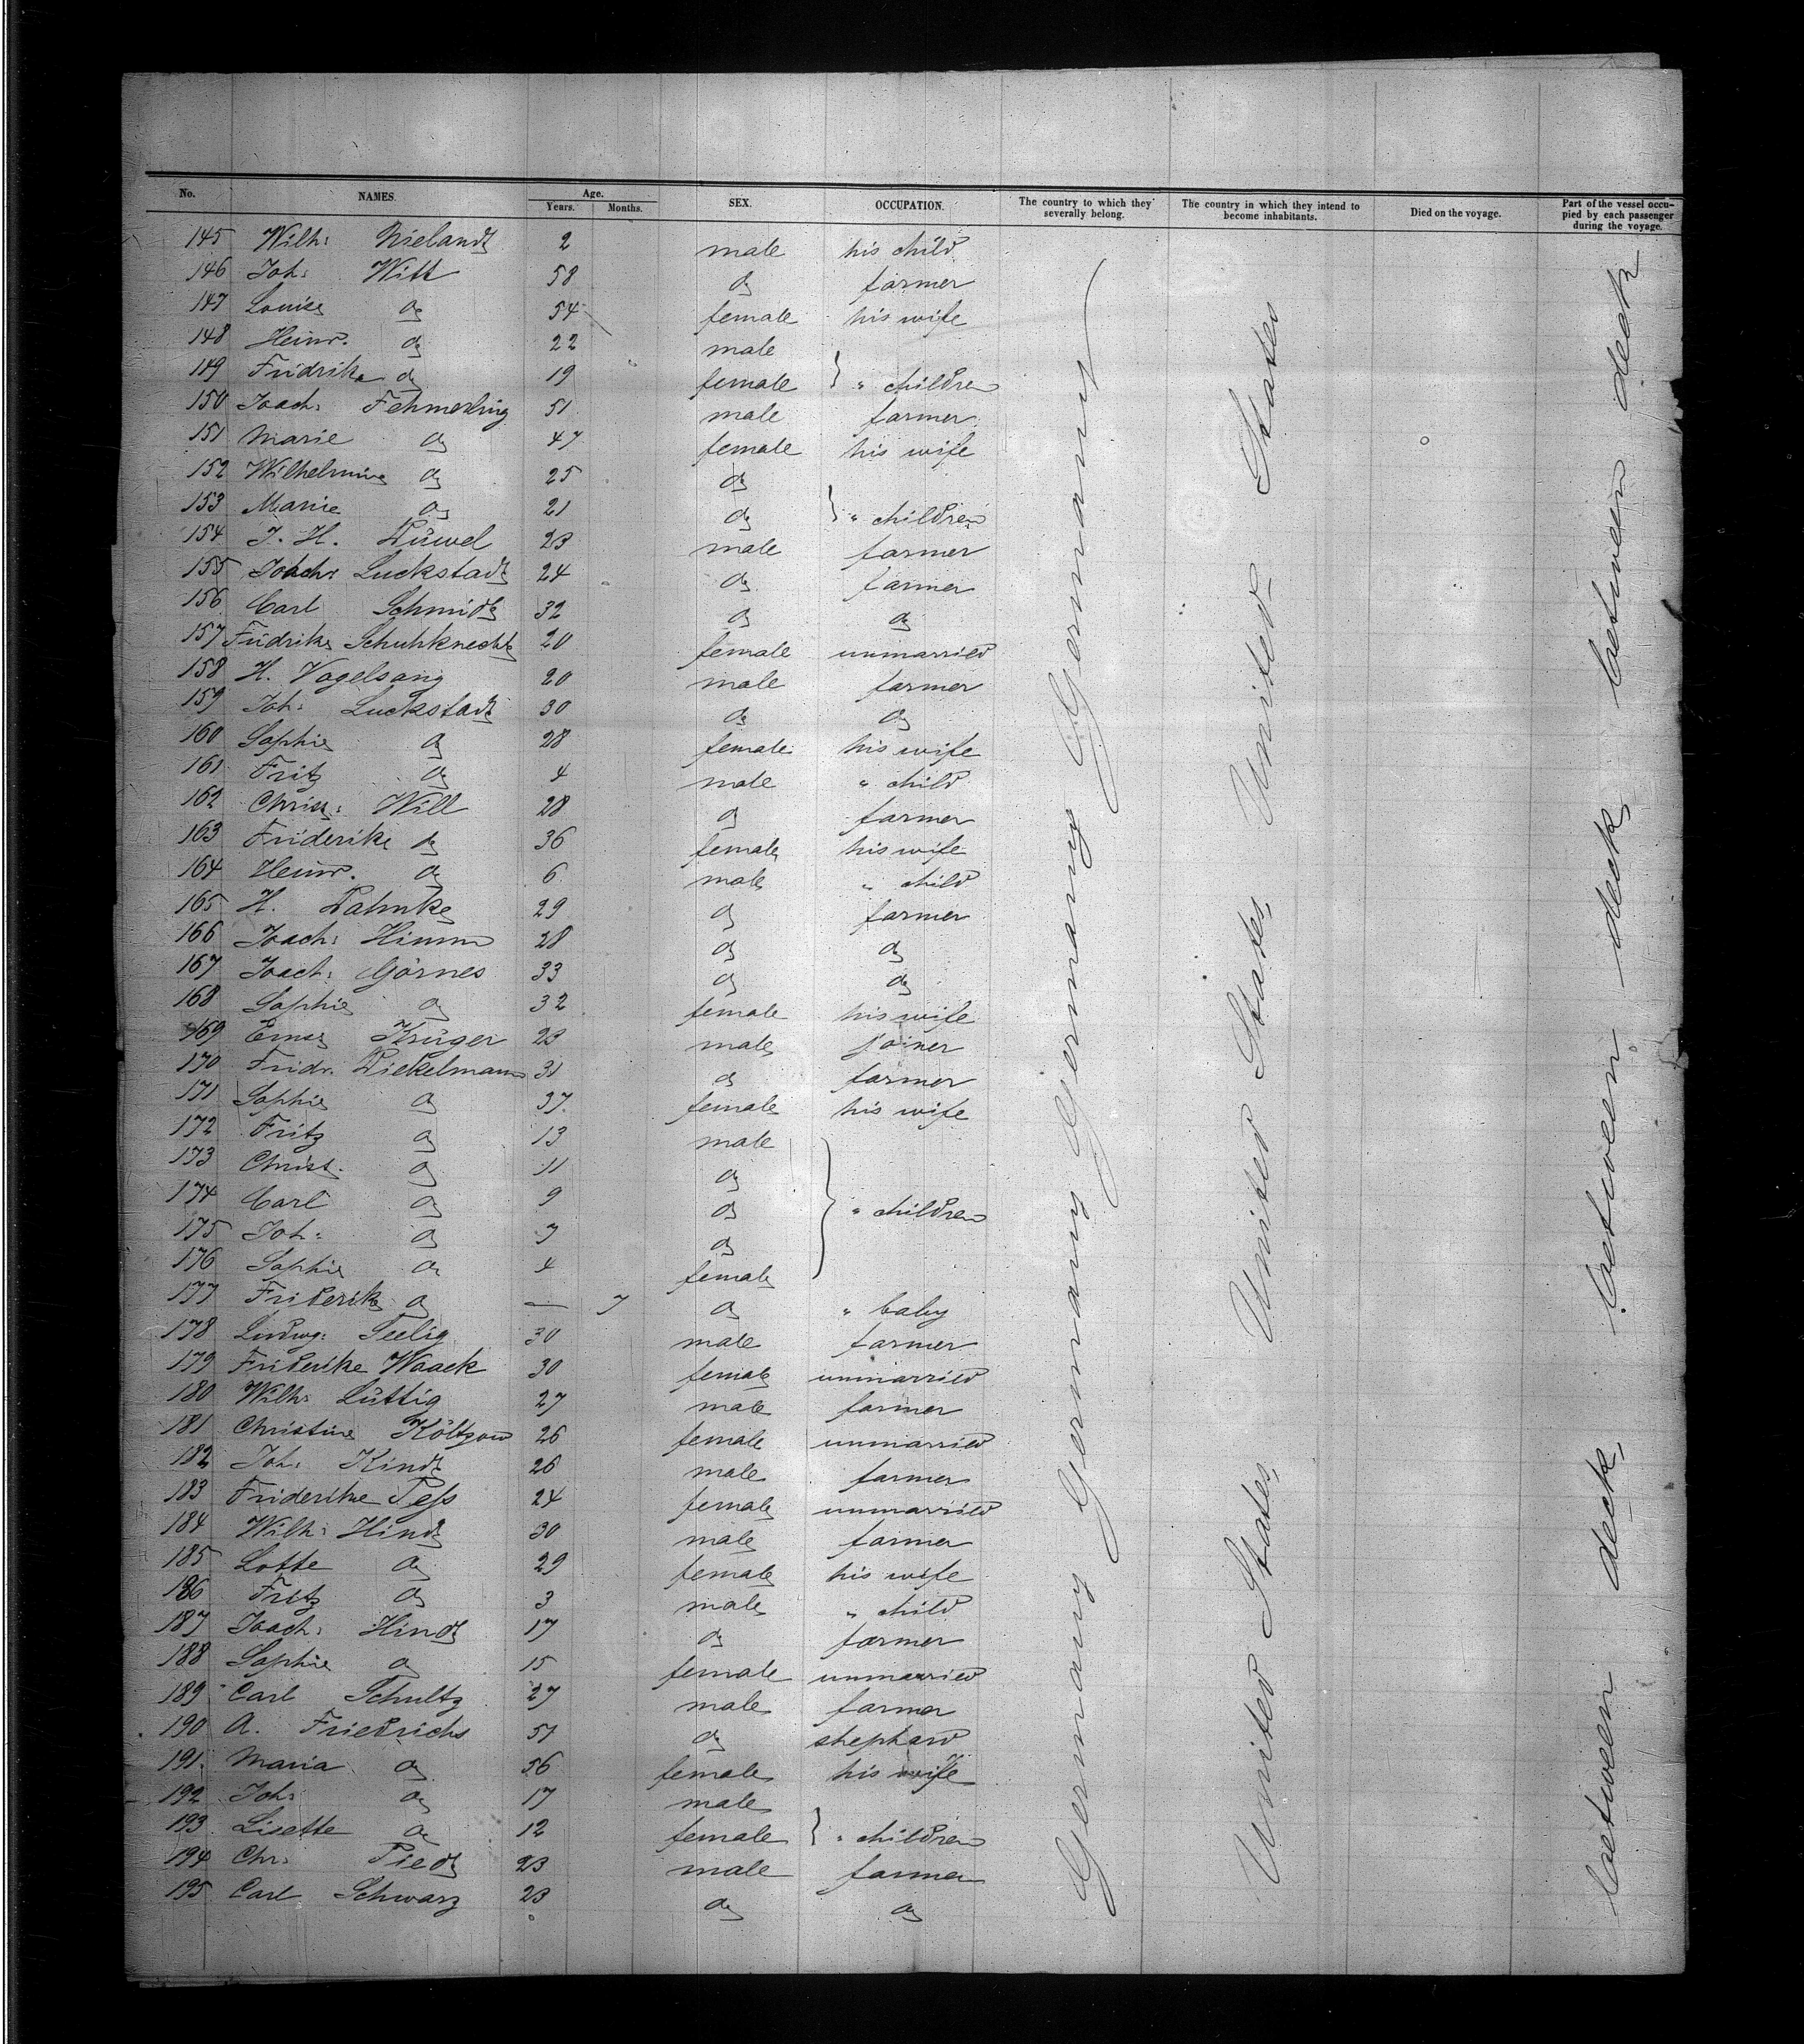 No. NAMES. Age. Years. Months. SEX. OCCUPATION. The country to which they severally belong. The country in which they intend to become inhabitants. Died on the voyage. Part of the vessel occupied by each passenger during the voyage.
145 Wilh: Nielandt 2 male his child
146 Joh: Witt 58 do farmer
147 Louise do 54 female his wife
148 Heinr. do 22 male
149 Fridrike do 19 female } " children
150 Joach: Fehmerling 51 male farmer
151 Marie do 47 female his wife
152 Wilhelmine do 25 do
153 Marie do 21 do } " children
154 J. H. Düwel 23 male farmer
155 Joach: Luckstadt 24 do farmer
156 Carl Schmidt 32 do do
157 Fridrike Schuhknecht 20 female unmarried
158 H. Vogelsang 20 male farmer
159 Joh: Luckstadt 30 do do
160 Sophie do 28 female his wife
161 Fritz do 4 male " child
162 Christ: Will 28 do farmer
163 Friderike do 36 female his wife
164 Heinr. do 6 male " child
165 H. Dahnke 29 do farmer
166 Joach: Himm 28 do do
167 Joach: Görnes 33 do do
168 Sophie do 32 female his wife
169 Ernst Krüger 23 male joiner
170 Fridr. Diekelmann 31 do farmer
171 Sophie do 37 female his wife
172 Fritz do 13 male
173 Christ. do 11 do
174 Carl do 9 do } " children
175 Joh: do 7 do
176 Sophie do 4 female
177 Friderike do — 7 do " baby
178 Ludwg: Seelig 30 male farmer
179 Friderike Waack 30 female unmarried
180 Wilh: Lüttig 27 male farmer
181 Christine Költzow 26 female unmarried
182 Joh: Kindt 26 male farmer
183 Friderike Pess 24 female unmarried
184 Wilh: Hindt 30 male farmer
185 Lotte do 29 female his wife
186 Fritz do 3 male " child
187 Joach: Hindt 17 do farmer
188 Sophie do 15 female unmarried
189 Carl Schultz 27 male farmer
190 A. Friedrichs 51 do shephard
191 Maria do 56 female his wife
192 Joh: do 17 male
193 Lisette do 12 female } " children
194 Chr: Tiedt 23 male farmer
195 Carl Schwarz 23 do do
Germany Germany Germany Germany
United States, United States, United States
between deck, between deck, between deck